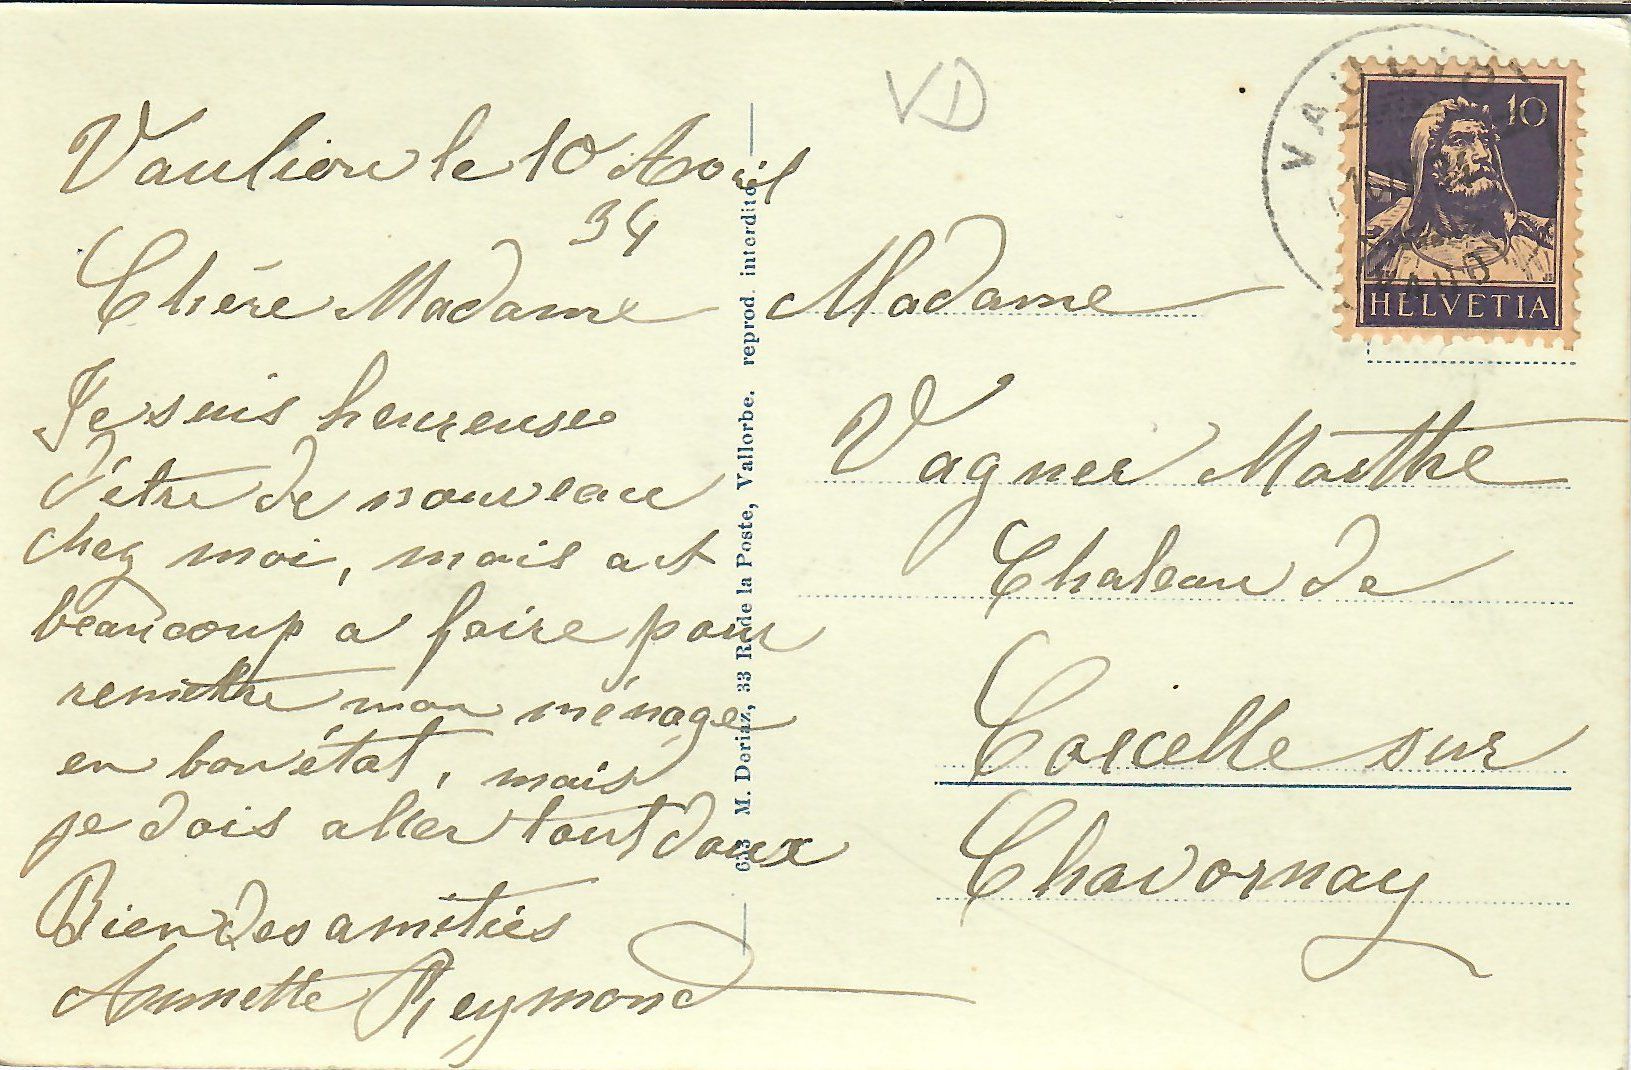 Vaulion le 10 Avril
34
Chère Madame
Je suis heureuse
d'être de nouveau
chez moi, mais ait
beaucoup a faire pour
remettre mon ménage
en bon état, mais
je dois aller tout doux
Bien des amitiés
Annette Reymond
633 M. Deriaz, 33 R. de la Poste, Vallorbe. reprod. interdite
VD
VAULION
VAUD
10
HELVETIA
Madame
Vagner Marthe
Chateau de
Corcelle sur
Chavornay